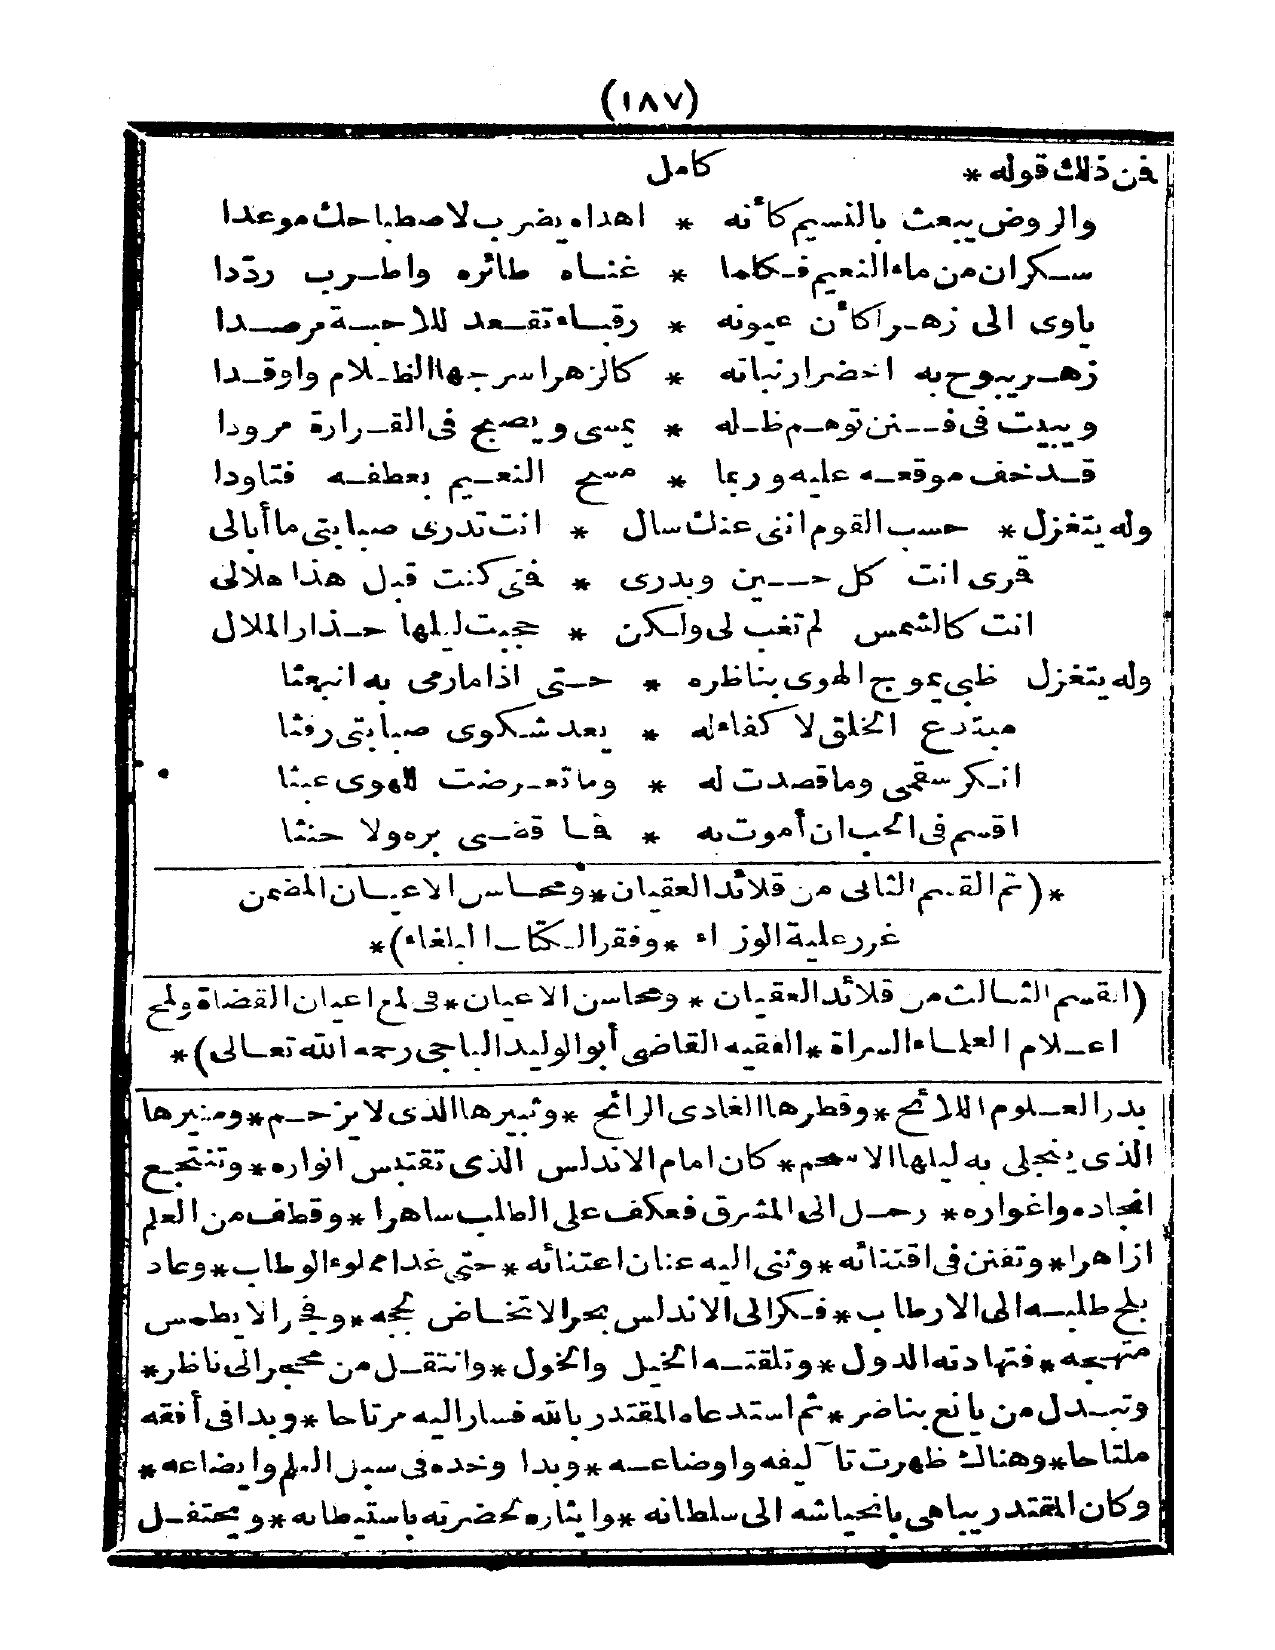 (١٨٧)
فمن ذلك قوله * كامل
والروض يبعث بالنسيم كأنه * اهداه يضرب لاصطباحك موعدا
سكران من ماء النعيم فكلما * غناه طائره واطرب رددا
ياوى الى زهر كأن عيونه * رقباء تقعد للاحبة مرصدا
زهر يبوح به اخضرار نباته * كالزهر اسرجها الظلام واوقدا
ويبيت فى فنن توهم ظله * يمسى ويصبح فى القرارة مرودا
قد خف موقعه عليه وربما * مسح النعيم بعطفه فتاودا
وله يتغزل * حسب القوم اننى عنك سال * انت تدرى صبابتى ما أبالى
قمرى انت كل حين وبدرى * فمتى كنت قبل هذا هلالى
انت كالشمس لم تغب لى ولكن * حجبت ليلها حذار الملال
وله يتغزل ظبى يموج الهوى بناظره * حتى اذا مارمى به انبعثا
مبتدع الخلق لا كفاء له * يعد شكوى صبابتى رفثا
انكر سقمى وما قصدت له * وما تعرضت للهوى عبثا
اقسم فى الحب ان أموت به * فما قضى بره ولا حنثا
*(تم القسم الثانى من قلائد العقيان * ومحاسن الاعيان المضمن
غرر علية الوزراء * وفقر الكتاب البلغاء)*
(القسم الثالث من قلائد العقيان * ومحاسن الاعيان * فى لمع اعيان القضاة ولمح
اعلام العلماء السراة * الفقيه القاضى أبو الوليد الباجى رحمه الله تعالى)*
بدر العلوم اللائح * وقطرها الغادى الرائح * وثبيرها الذى لا يزحم * ومنيرها
الذى ينجلى به ليلها الاسحم * كان امام الاندلس الذى تقتبس انواره * وتنتجع
انجاده واغواره * رحل الى المشرق فعكف على الطلب ساهرا * وقطف من العلم
ازاهرا * وتفنن فى اقتنائه * وثنى اليه عنان اعتنائه * حتى غدا مملوء الوطاب * وعاد
بلح طلبه الى الارطاب * فكر الى الاندلس بحر الا تخاض لججه * وفجر الا يطمس
منهجه * فتهادته الدول * وتلقته الخيل والخول * وانتقل من محجر الى ناظر *
وتبدل من يانع بناضر * ثم استدعاه المقتدر بالله فسار اليه مرتاحا * وبدا فى أفقه
ملتاحا * وهناك ظهرت تآليفه واوضاعه * وبدا وخده فى سبل العلم وايضاعه *
وكان المقتدر يباهى بانحياشه الى سلطانه * وايثاره لحضرته باستيطانه * ويحتفل